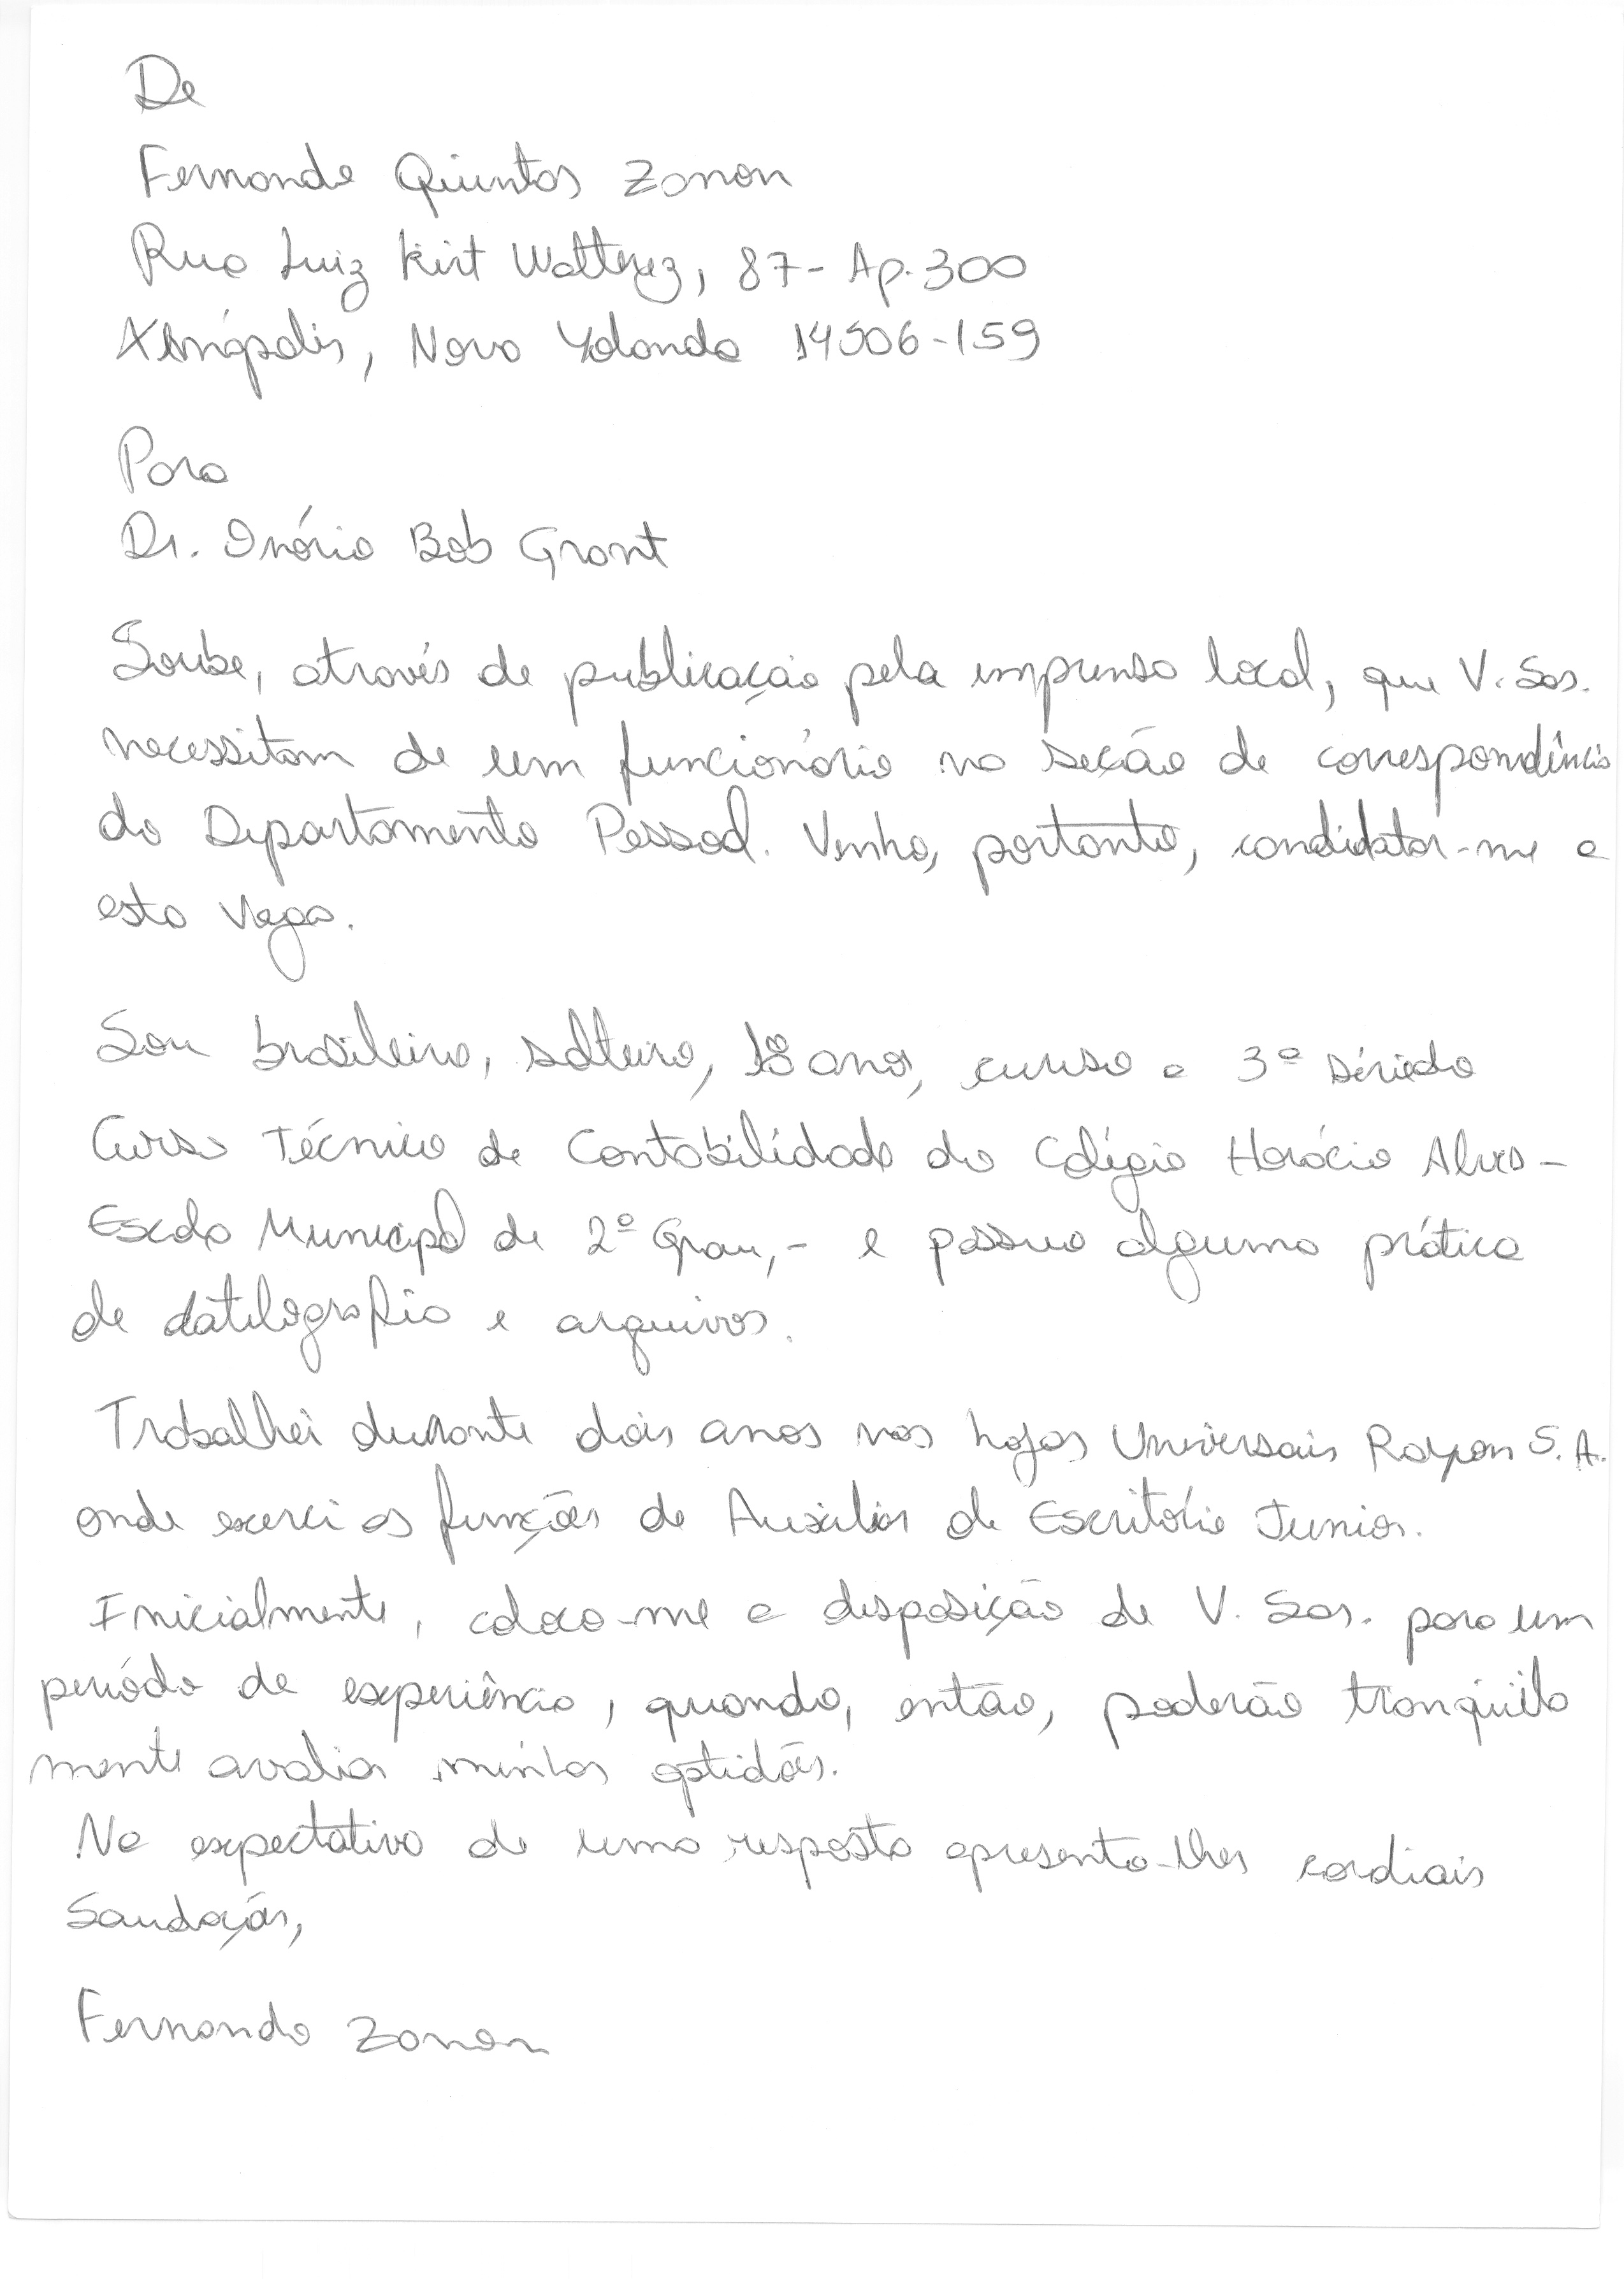 De
Fernando Quintos Zonon
Rua Luiz Kirt Watterez, 87- Ap. 300
Xenópolis, Nova Yolanda 14506-159
Para
Dr. Onório Bob Grant
Soube, através de publicação pela imprensa local, que V. Sas.
necessitam de um funcionário na seção de correspondência
do Departamento Pessoal. Venho, portanto, candidatar-me a
esta vaga.
Sou brasileiro, solteiro, 18 anos, curso a 3ª série do
Curso Técnico de Contabilidade do Colégio Horácio Alves -
Escola Municipal de 2º Grau, - e possuo alguma prática
de datilografia e arquivos.
Trabalhei durante dois anos nas Lojas Universais Raypon S. A.
onde exerci as funções de Auxiliar de Escritório Junior.
Inicialmente, coloco-me a disposição de V. Sas. para um
período de experiência, quando, então, poderão tranquila
mente avaliar minhas aptidões.
Na expectativa de uma resposta apresento-lhes cordiais
Saudações,
Fernando Zonon